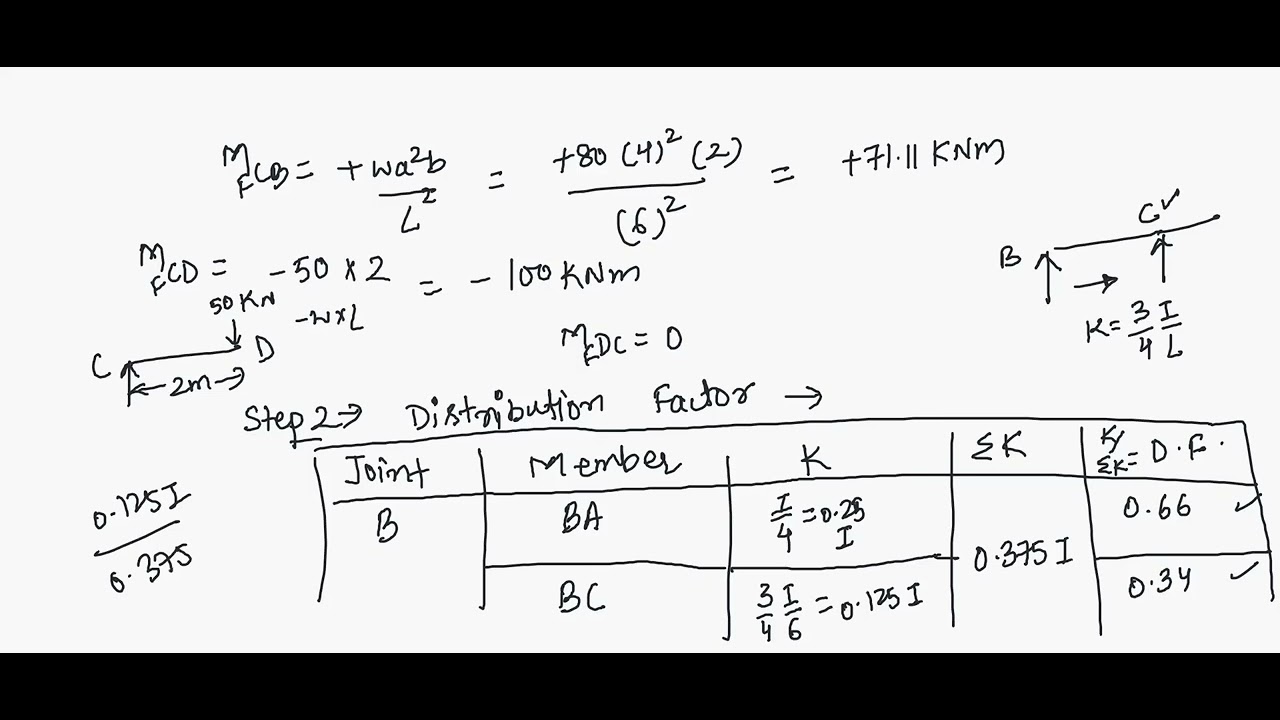 M_FCB = + wa²b / L² = +80 (4)² (2) / (6)² = +71.11 KNm
M_FCD = -50 × 2 = - 100 KNm
50 KN
-w×L
C D
2m
M_FDC = 0
B C✓
K = 3/4 I/L
Step 2 → Distribution Factor →
Joint Member K ΣK K/ΣK = D.F.
B BA I/4 = 0.25 I 0.375 I 0.66 ✓
BC 3/4 I/6 = 0.125 I 0.34 ✓
0.125 I / 0.375